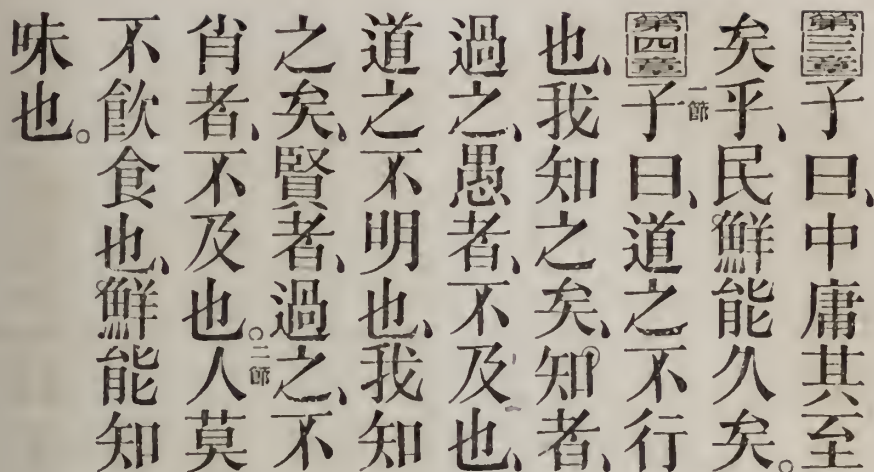 第三章子曰、中庸其至
矣乎、民鮮能久矣。
第四章一節子曰、道之不行
也、我知之矣、知者、
過之、愚者、不及也、
道之不明也、我知
之矣。賢者、過之、不
肖者、不及也。二節人莫
不飲食也、鮮能知
味也。